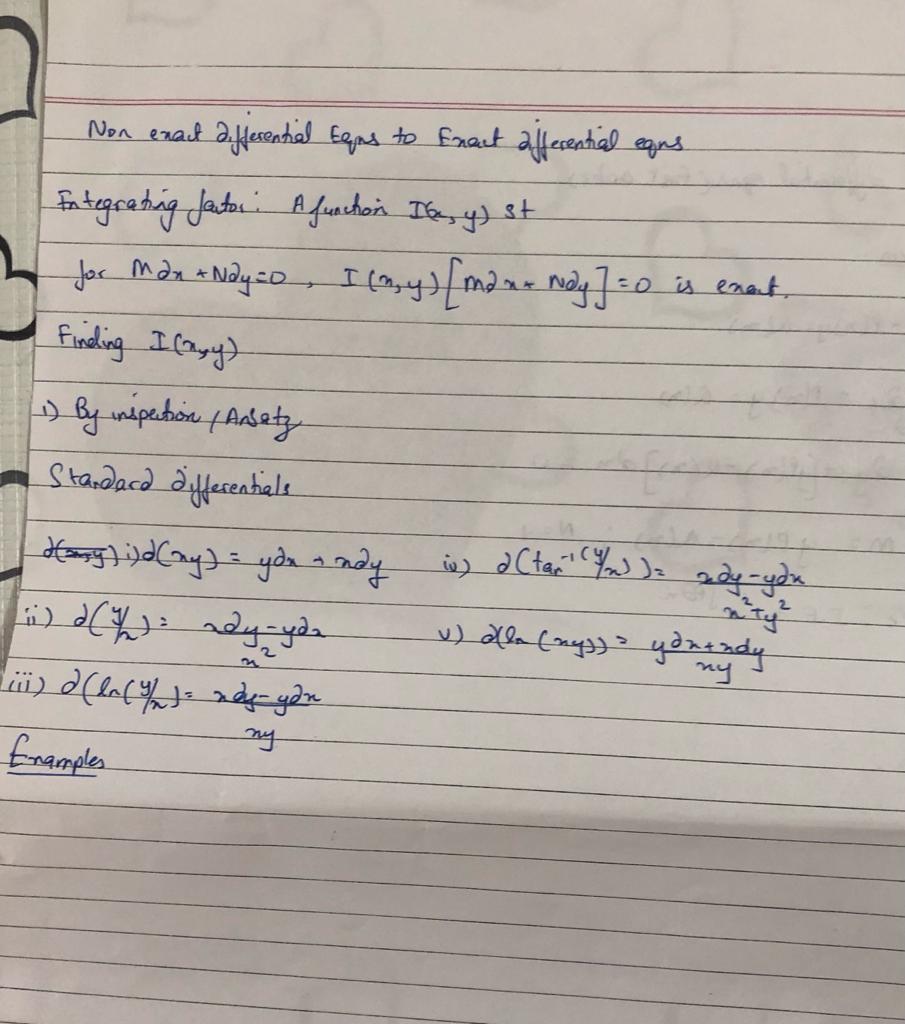 Non exact differential Eqns to Exact differential eqns
Integrating factor: A function I(x, y) st
for Mdx + Ndy=0, I(x,y)[Mdx + Ndy]=0 is exact.
Finding I(x,y)
i) By inspection / Ansatz
Standard differentials
i) d(xy) = ydx + xdy iv) d(tan⁻¹(y/x)) = xdy-ydx / x²+y²
ii) d(y/x) = xdy-ydx / x² v) d(ln(xy)) = ydx+xdy / xy
iii) d(ln(y/x) = xdy-ydx / xy
Examples